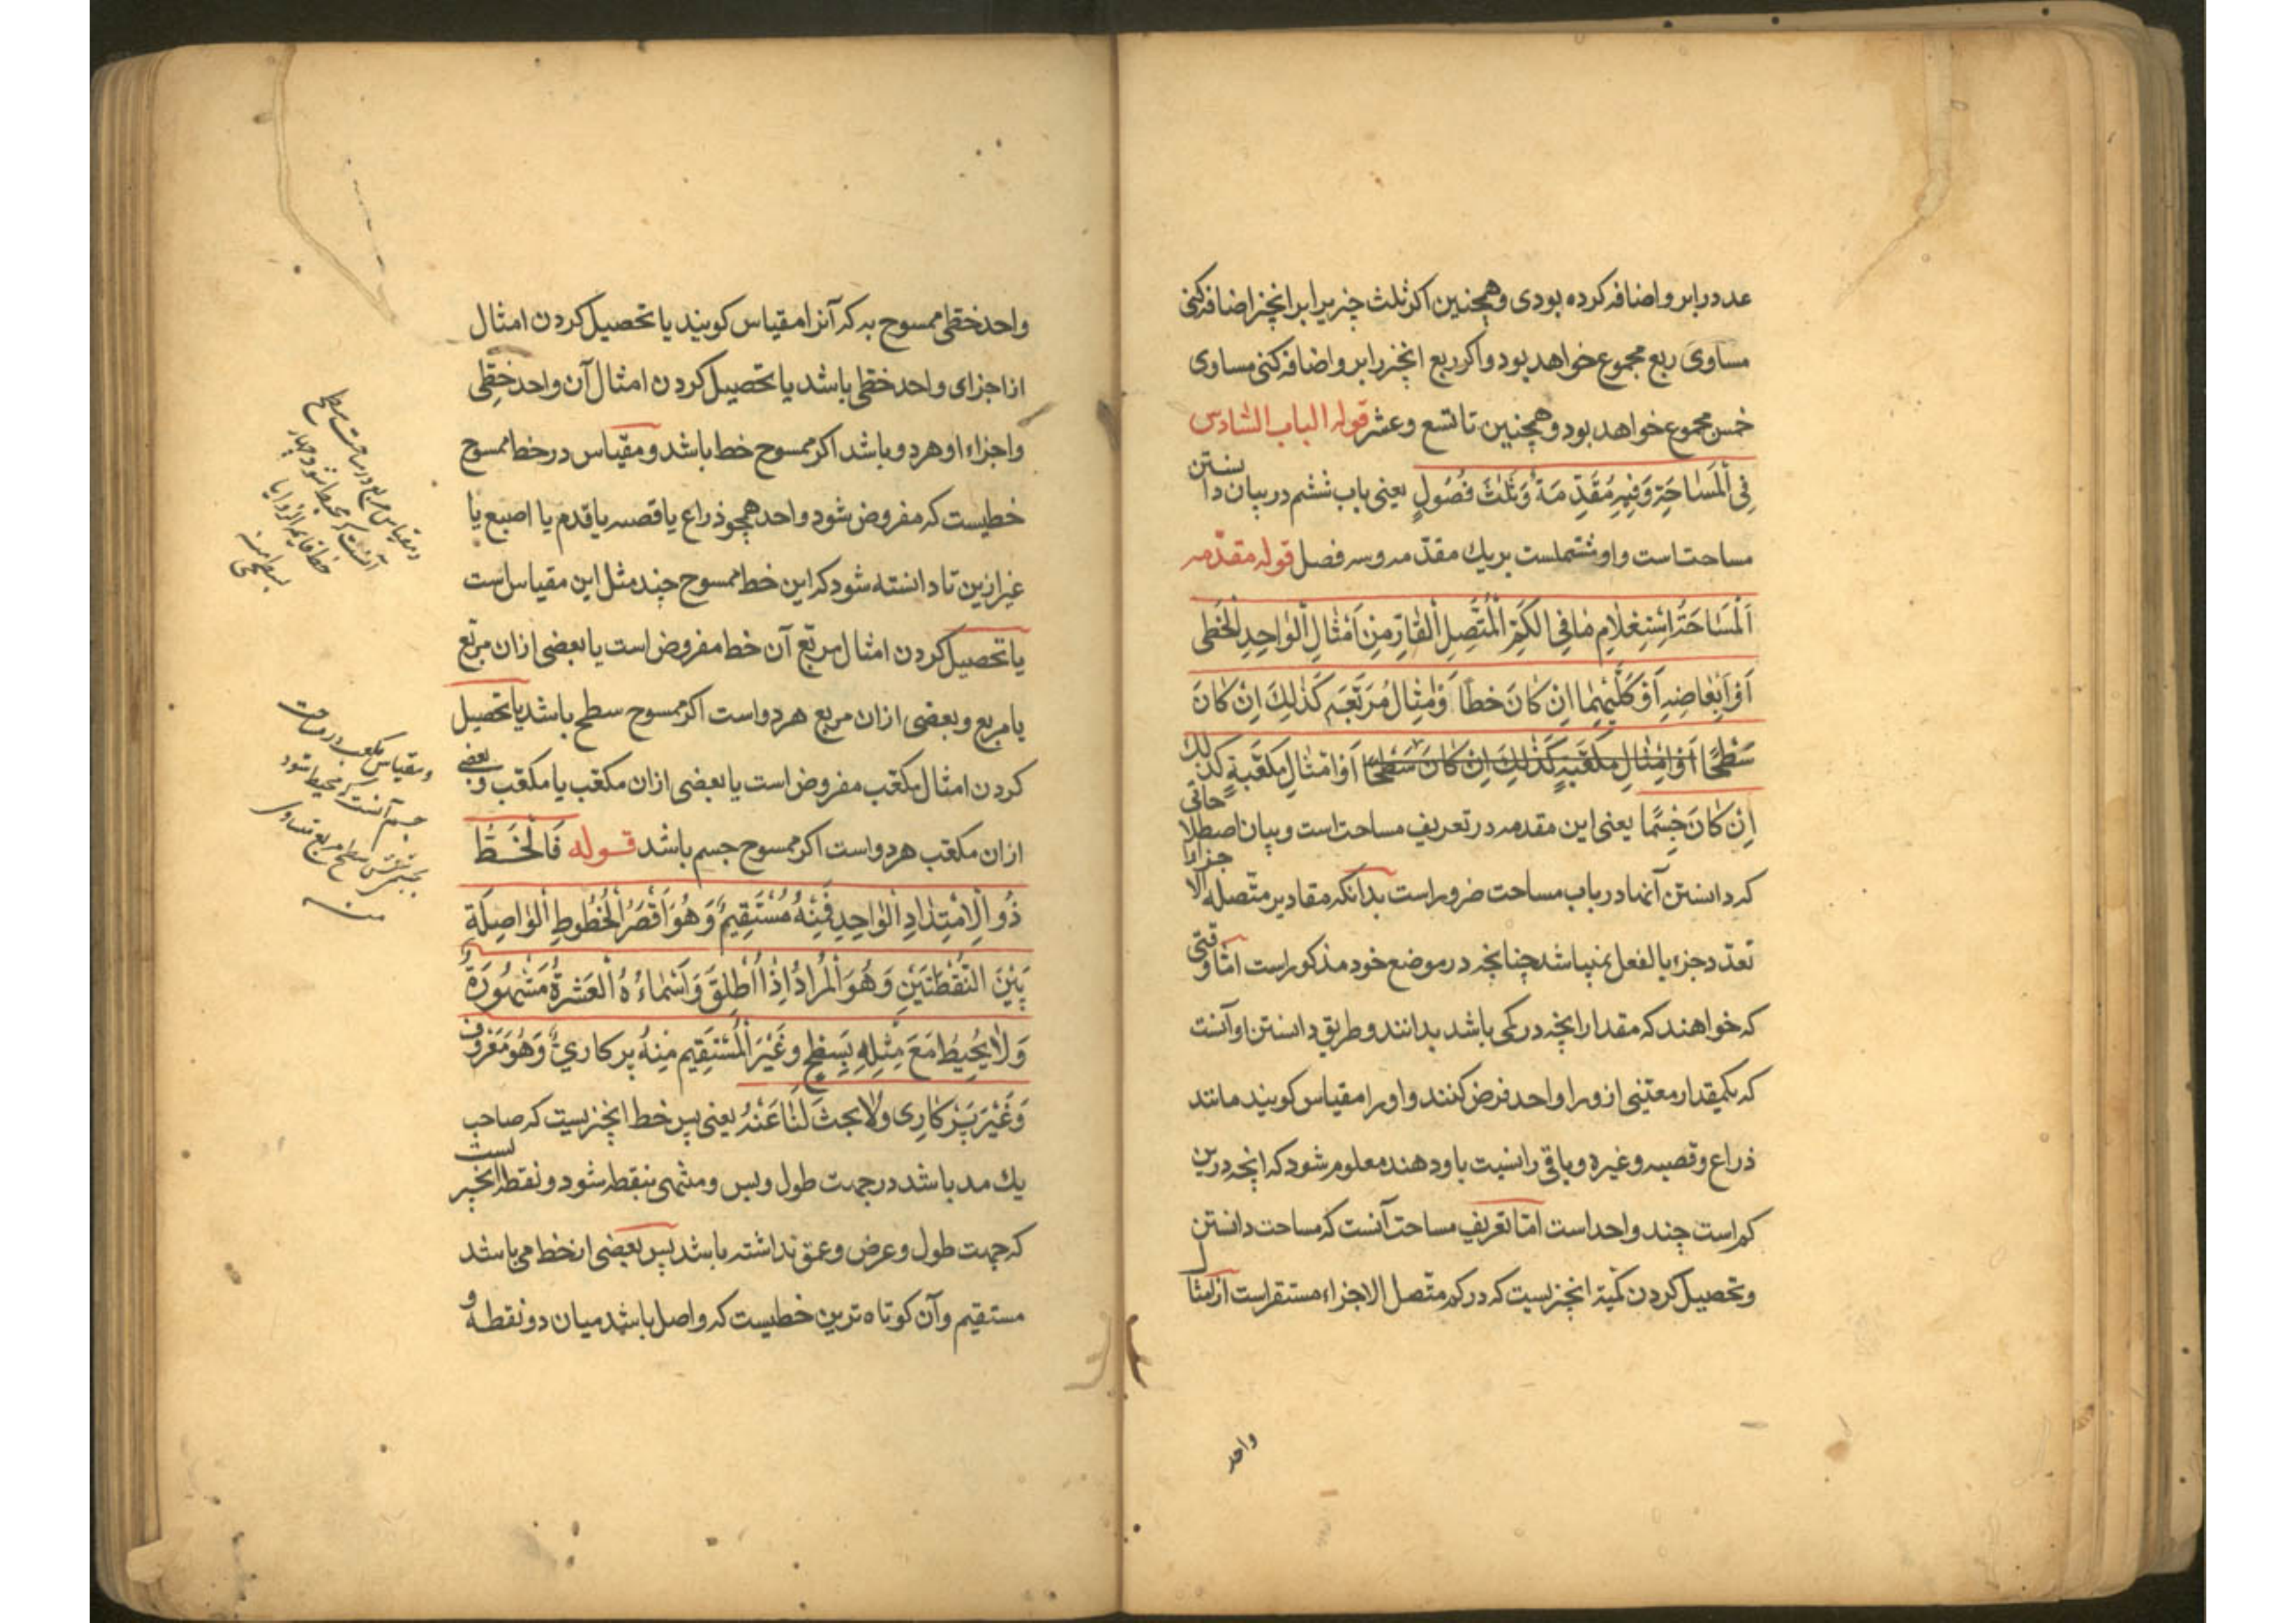 عدد را بر او اضافه کرده بودی و همچنین اکر ثلث چیز یرا بر انچیز اضافه کنی
مساوی ربع مجموع خواهد بود و اکر ربع انچیز را بر و اضافه کنی مساوی
خمس مجموع خواهد بود و همچنین تا تسع و عشر قوله الباب السّادس
فِی اَلْمَسٰاحَةِ وَفیٖهِ مُقَدِّمَةٌ وَثَلٰثَ فُصُولٍ یعنی باب ششم در بیان دانستن
مساحتاست و او مشتملست بر یك مقدّمه و سه فصل قوله مقدّمه
اَلْمَسٰاحَةُ اِسْتِعْلٰامِ مٰا فِی الکَمِّ الْمُتَّصِلِ الْقٰارِّ مِنْ اَمْثٰالِ الْوٰاحِدِ الْخَطّیِ
اَوْ اَبْعٰاضِهِ اَوْ کِلَیْهِمٰا اِنْ کٰانَ خَطّاً وَمْثٰالُ مُرَبَّعِهِ کَذٰلِكَ اِنْ کٰانَ
سَطْحًا اَوْ اَمْثٰالِ مکَعَّبِهٖ کَذٰلِكَ اِنْ کٰانَ سَطْحًا اَوْ اَمْثٰالِ مکَعَّبِهٖ کَذٰلِكَ
اِنْ کٰانَ جِسْمًا یعنی این مقدمه در تعریف مساحت است و بیان اصطلاحاتی
که دانستن آنها در باب مساحت ضرور است بدانکه مقادیر متّصله الاجزاء
تعدّد جزء بالفعل نمیباشد چنانچه در موضع خود مذکور است امّا وقتی
که خواهند که مقدار انچه در کمی باشد بدانند و طریق دانستن او آنست
که یکمقدار معیّنی از و را واحد فرض کنند و او را مقیاس کویند مانند
ذراع و قصبه و غیره و باقی را نسبت باو دهند معلوم شود که انچه درین
کم است چند واحد است امّا تعریف مساحت آنست که مساحت دانستن
و تحصیل کردن کمّیة انچیزیست که در کم متّصل الاجزاء مستقر است از امثال
واحد
واحد خطّی ممسوح به که آنرا مقیاس کویند یا تحصیل کردن امثال
از اجزای واحد خطّی باشد یا تحصیل کردن امثال آن واحد خطّی
واجزاء او هر دو باشد اکر ممسوح خط باشد و مقیاس در خط ممسوح
خطیست که مفروض شود واحد همچو ذراع یا قصبه یا قدم یا اصبع یا
غیر ازین تا دانسته شود که این خط ممسوح چند مثل این مقیاس است
یا تحصیل کردن امثال مربّع آن خط مفروض است یا بعضی از ان مربّع
یا مربع و بعضی از ان مربع هر دو است اکر ممسوح سطح باشد یا تحصیل
کردن امثال مکعّب مفروض است یا بعضی از ان مکعّب یا مکعّب و بعضی
از ان مکعّب هر دو است اکر ممسوح جسم باشد قوله فَالْخَطُّ
ذُو الْاِمْتِدٰادِ الْوٰاحِدِ فَمِنْهُ مُسْتَقِیمٌ وَهُوَ اَقْصَرُ الْخُطُوطِ الْوٰاصِلَةِ
بَیْنَ النُّقْطَتَیْنِ وَهُوَ الْمُرٰادُ اِذٰا اُطْلِقَ وَاَسْمٰاءُهُ الْعَشَرَةُ مَشْهُورَةٌ
وَلٰا یُحِیطُ مَعَ مِثْلِهِ بِسَطْحٍ وَغَیْرَ الْمُسْتَقِیمِ مِنْهُ پرکاریٌّ وَهُوَ مَعْرُوفٌ
وَغَیْرَ پَرْکٰاری وَلٰا بحثَ لَنٰا عَنْهُ یعنی پس خط انچیزیست که صاحب
یك مد باشد در جهت طول و بس و منتهی بنقطه شود و نقطه انچیزیست
که جهت طول و عرض و عمق نداشته باشد پس بعضی از خط می باشد
مستقیم و آن کوتاه ترین خطیست که واصل باشد میان دو نقطه و
و مقیاس مربع در مساحت سطح
آنست که محیط شود چهار
خط قایم الزوایا
بسطحی منه
و مقیاس مکعب در مساحت
جسم آنست که محیط شود
بجسم شش سطح مربع متساوی
منه